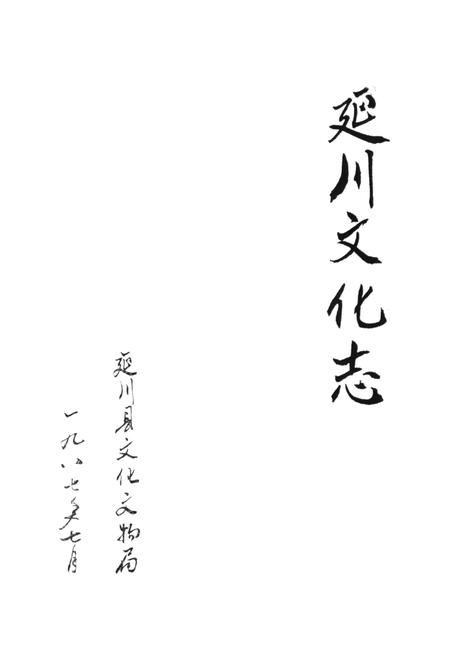 延川文化志
延川县文化文物局
一九八七年七月